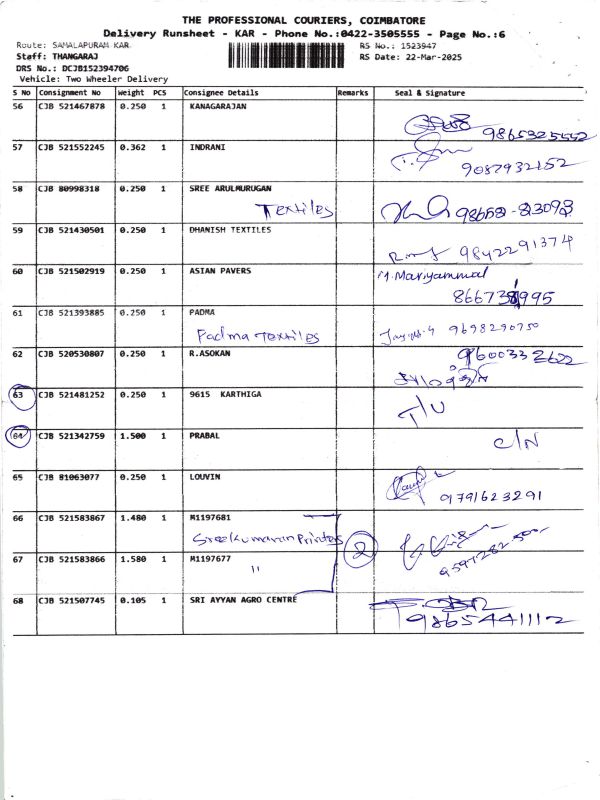 THE PROFESSIONAL COURIERS, COIMBATORE
Delivery Runsheet - KAR - Phone No.:0422-3505555 - Page No.:6
Route: SAMALAPURAM KAR
RS No.: 1523947
Staff: THANGARAJ
RS Date: 22-Mar-2025
DRS No.: DCJB152394706
Vehicle: Two Wheeler Delivery
S No Consignment No Weight PCS Consignee Details Remarks Seal & Signature
56 CJB 521467878 0.250 1 KANAGARAJAN
9865325552
57 CJB 521552245 0.362 1 INDRANI
9087932152
58 CJB 80998318 0.250 1 SREE ARULMURUGAN
Textiles
59 CJB 521430501 0.250 1 DHANISH TEXTILES
9842291374
60 CJB 521502919 0.250 1 ASIAN PAVERS M. Mariyammal
61 CJB 521393885 0.250 1 PADMA
Padma Textiles 9698290750
62 CJB 520530807 0.250 1 R.ASOKAN 9600332622
63 CJB 521481252 0.250 1 9615 KARTHIGA
T/U
64 CJB 521342759 1.500 1 PRABAL C/N
65 CJB 81063077 0.250 1 LOUVIN
9791623291
66 CJB 521583867 1.480 1 M1197681
Sreekumaran Printers 2
67 CJB 521583866 1.580 1 M1197677
"
68 CJB 521507745 0.105 1 SRI AYYAN AGRO CENTRE
9865441112